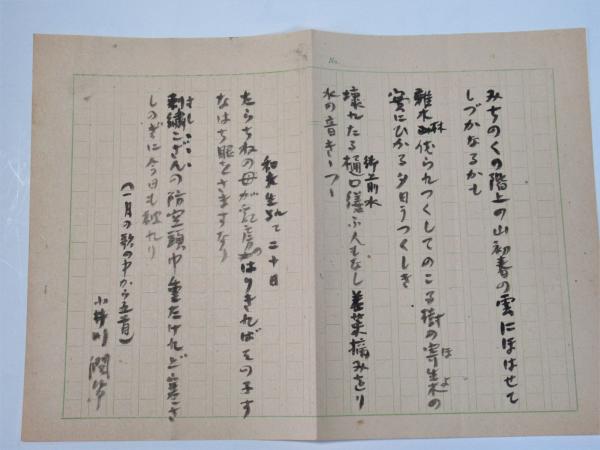 No.
みちのくの階上の山初春の雲にほはせて
しづかなるかも
雑木林伐られつくしてのこる樹の寄生木の
ほよ
実にひかる夕日うつくしき
街上前水
壊れたる樋口繕ふ人もなし 若菜摘みをり
水の音きゝつゝ
和 生れて二十日
たらちねの母が乳房のはりきればその子す
なはち眼をさますなり
さしこ
刺繍こぎんの防空頭巾重たけれど寒さ
しのぎに今日も被れり
(一月の歌の中から五首)
小井川潤